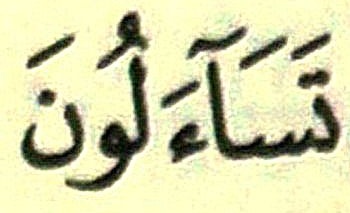 تَسَآءَلُونَ